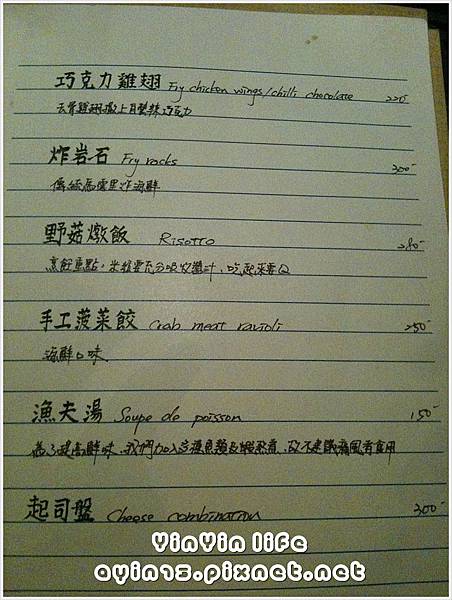 巧克力雞翅 Fry chicken wings/chilli chocolate 220-
去骨雞翅撒上自製辣巧克力
炸岩石 Fry rocks 300-
傳統馬雲里炸海鮮
野菇燉飯 Risotto 280-
烹飪重點，米粒要充分吸收醬汁，吃起來要Q
手工菠菜餃 Crab meat ravioli 250-
海鮮口味
漁夫湯 Soupe de poisson 150-
為了提高鮮味，我們加入各種魚類及蝦熬煮，故不建議痛風者食用
起司盤 Cheese combination 300-
YinYin life
ayin73.pixnet.net